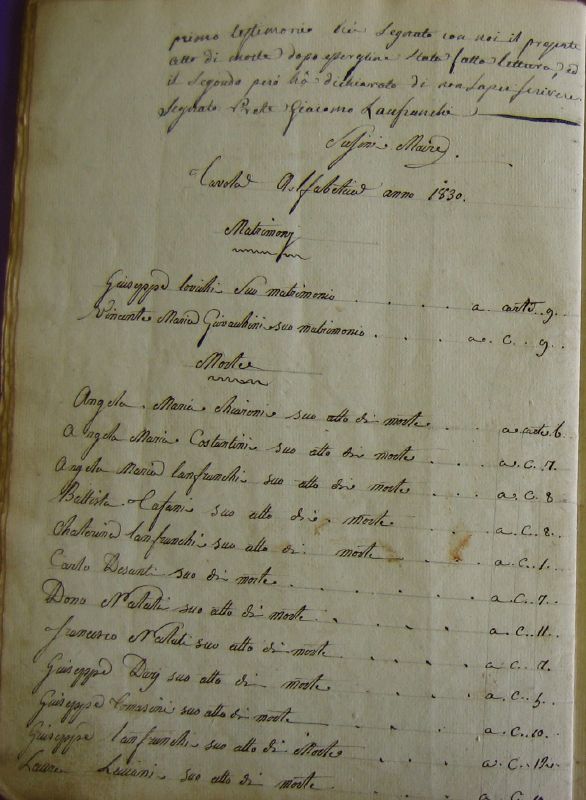 primo testimonio hà segnato con noi il presente
atto di morte dopo essergline stata fatta lettura, ed
il segondo però hà dichiarato di non saper scrivere
Segnato Giacomo Lanfranchi
Susini Maire
Tavola Alfabetica anno 1830.
Matrimonj
Giuseppe suo matrimonio . . . . . a carte. 9.
Vincente Maria Giovanchini suo matrimonio . . . a. c. 9
Morte
Angela Maria suo atto di morte . . . a carte 6.
Angela Maria Costantini suo atto di morte . . . a. c. 7.
Angela Maria lanfranchi suo atto di morte . . a. c. 8
Battista suo atto di morte . . . a. c. 8.
Chatterina lanfranchi suo atto di morte . . . a. c. 1.
Carlo Desanti suo di morte . . . . . a. c. 7.
Dona Natali suo atto di morte . . . . a. c. 11.
francesco Natali suo atto di morte . . . . a. c. 7.
Giuseppe suo atto di morte . . . . a. c. 5.
Giuseppe Tomasini suo atto di morte . . . . a. c. 10.
Giuseppe lanfranchi suo atto di Morte . . . a. c. 12.
Luciani suo atto di morte . . . . a. c.